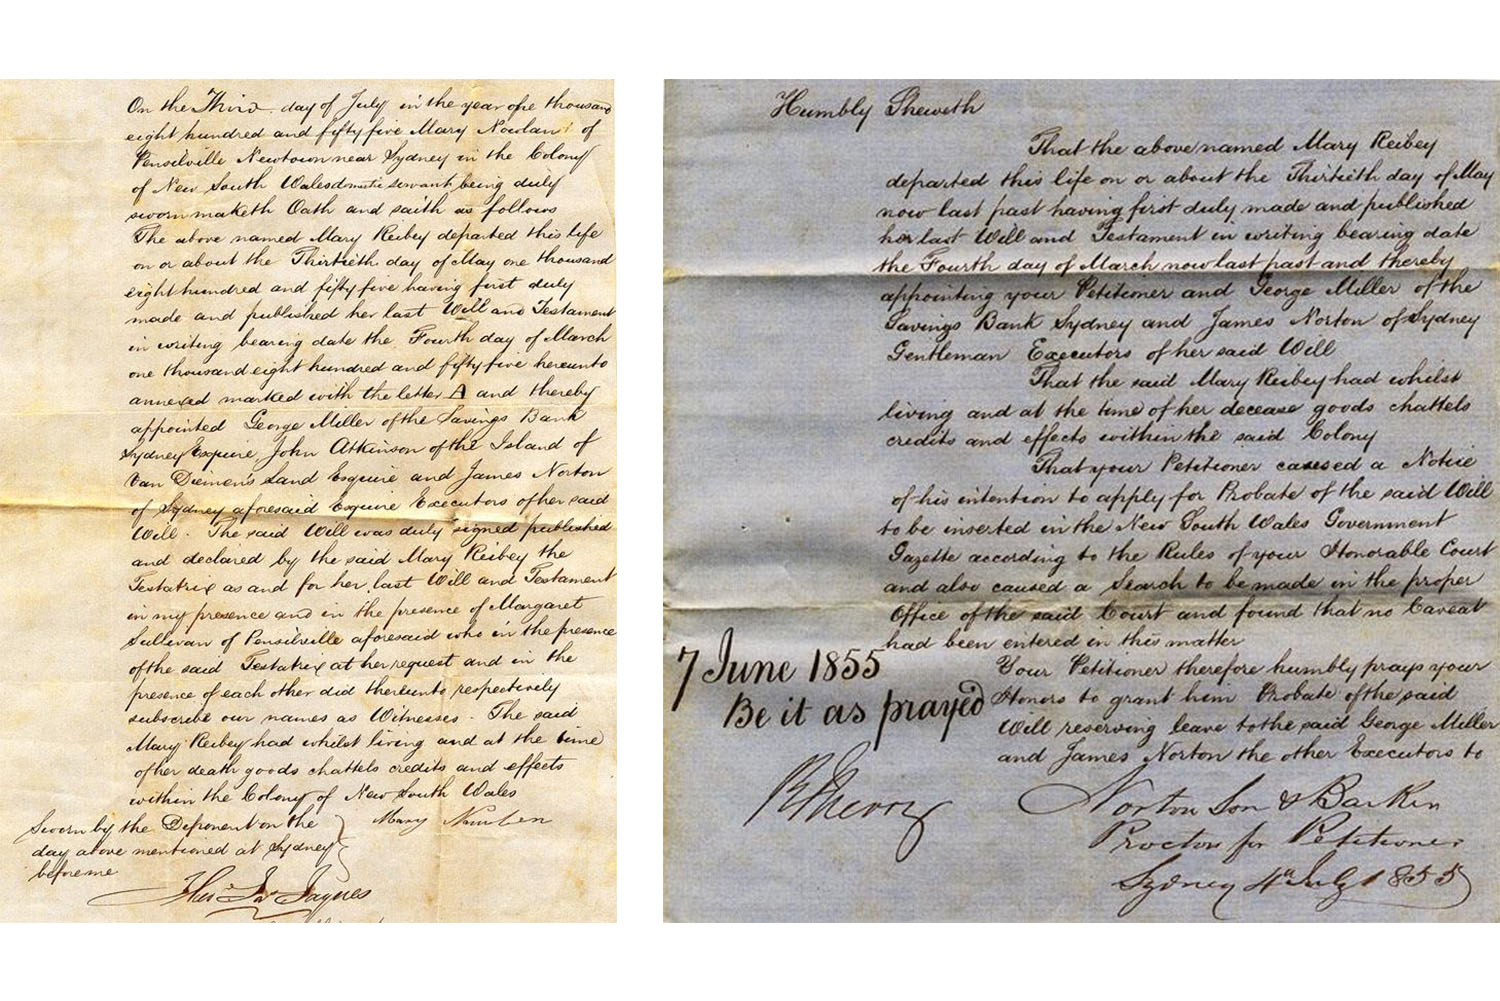 On the Third day of July in the year one thousand
eight hundred and fifty five Mary Nowlan of
Pensilville Newtown near Sydney in the Colony
of New South Wales domestic servant being duly
sworn maketh Oath and saith as follows
The above named Mary Reibey departed this life
on or about the Thirtieth day of May one thousand
eight hundred and fifty five having first duly
made and published her last Will and Testament
in writing bearing date the Fourth day of March
one thousand eight hundred and fifty five hereunto
annexed marked with the letter A and thereby
appointed George Miller of the Savings Bank
Sydney Esquire John Atkinson of the Island of
Van Diemen's Land Esquire and James Norton
of Sydney aforesaid Esquire Executors of her said
Will. The said Will was duly signed published
and declared by the said Mary Reibey the
Testatrix as and for her last Will and Testament
in my presence and in the presence of Margaret
Sullivan of Pensilville aforesaid who in the presence
of the said Testatrix at her request and in the
presence of each other did thereunto respectively
subscribe our names as Witnesses. The said
Mary Reibey had whilst living and at the time
of her death goods chattels credits and effects
within the Colony of New South Wales
Sworn by the Deponent on the
day above mentioned at Sydney
before me
Mary
Humbly Sheweth
That the above named Mary Reibey
departed this life on or about the Thirtieth day of May
now last past having first duly made and published
her last Will and Testament in writing bearing date
the Fourth day of March now last past and thereby
appointing your Petitioner and George Miller of the
Savings Bank Sydney and James Norton of Sydney
Gentleman Executors of her said Will
That the said Mary Reibey had whilst
living and at the time of her decease goods chattels
credits and effects within the said Colony
That your Petitioner caused a Notice
of his intention to apply for Probate of the said Will
to be inserted in the New South Wales Government
Gazette according to the Rules of your Honorable Court
and also caused a Search to be made in the proper
Office of the said Court and found that no Caveat
had been entered in this matter
Your Petitioner therefore humbly prays your
Honors to grant him Probate of the said
Will reserving leave to the said George Miller
and James Norton the other Executors to
7 June 1855
Be it as prayed
Norton Son & Barker
Proctors for Petitioner
Sydney 4th July 1855